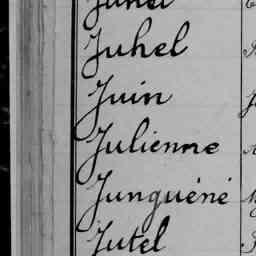 Juhel
Juin
Julienne
Junguéné
Jutel